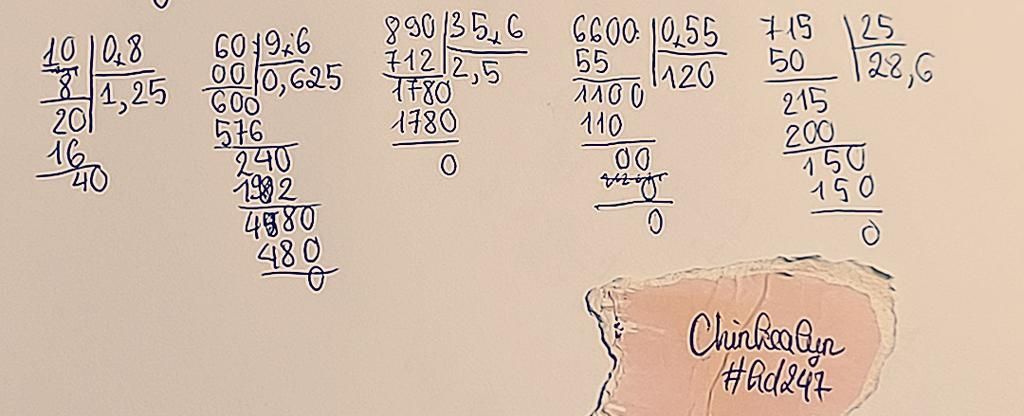 10 0,8
8 1,25
20
16
40
60 9,6
00 0,625
600
576
240
192
480
480
0
890 35,6
712 2,5
1780
1780
0
6600 0,55
55 120
1100
110
00
0
0
715 25
50 28,6
215
200
150
150
0
#Ad247